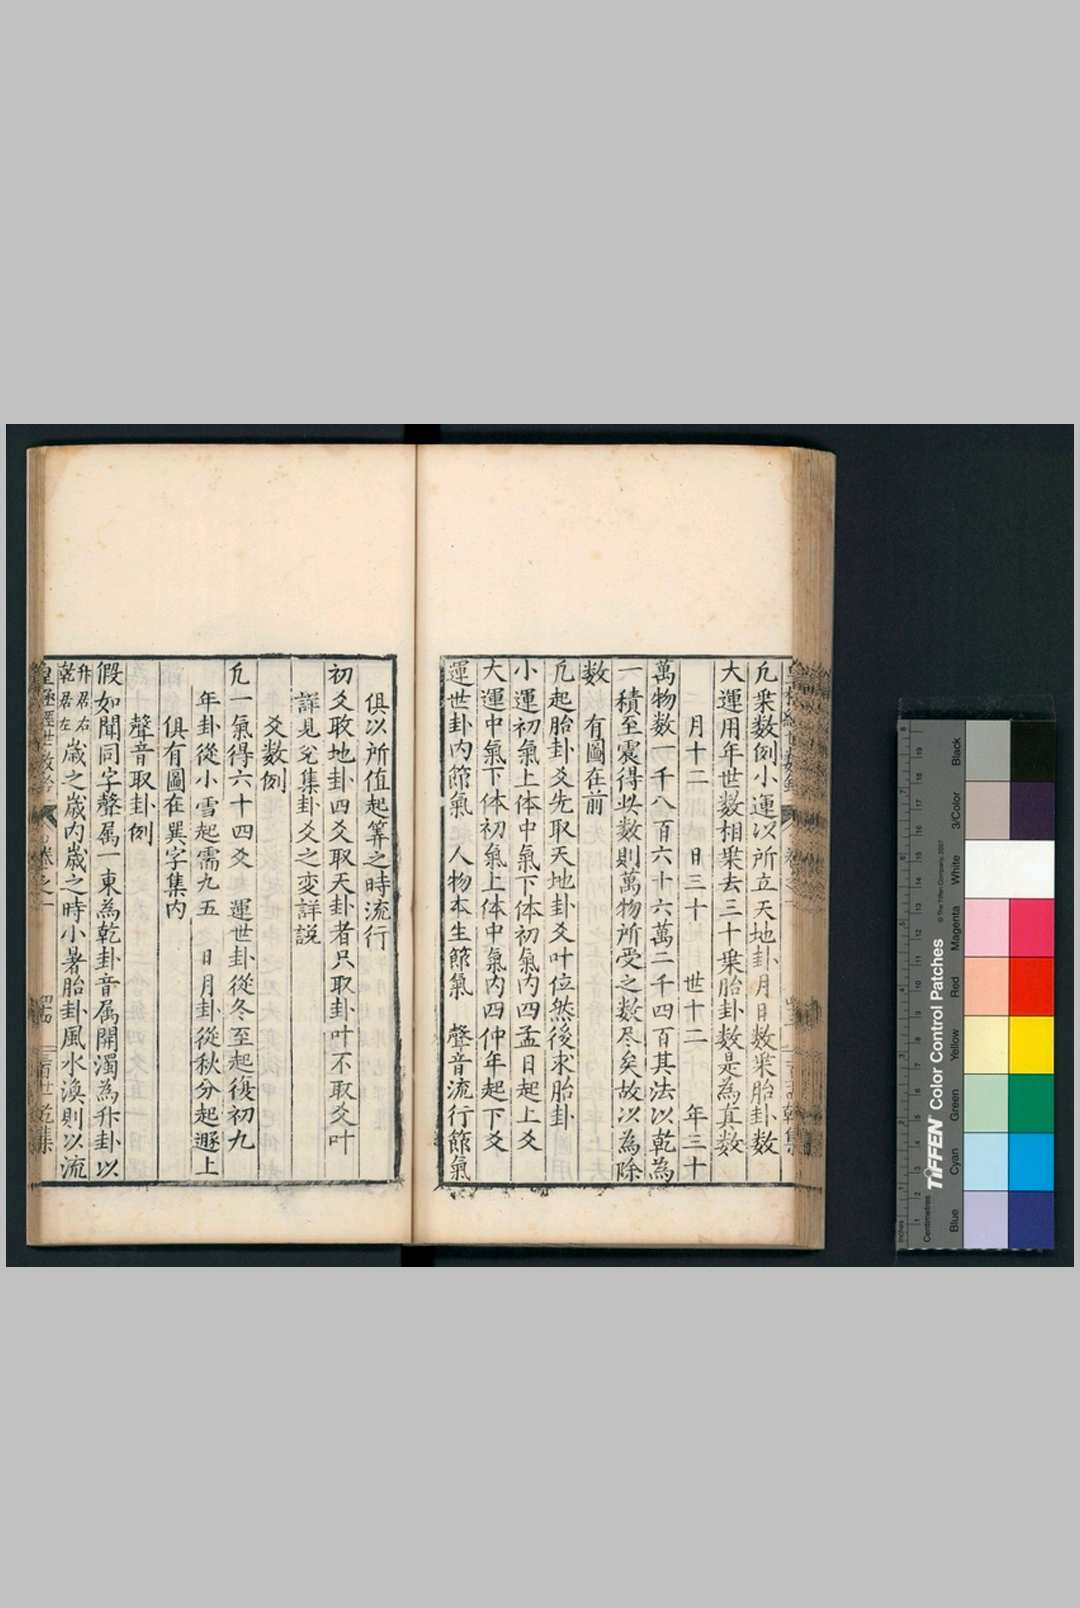 凢乗数例小運以所立天地卦月日数乗胎卦数
大運用年世数相乗去三十乗胎卦数是為真数
月十二 日三十 世十二 年三十
萬物数一千八百六十六萬二千四百其法以乾為
一積至震得此数則萬物所受之数尽矣故以為除
数 有圖在前
凢起胎卦爻先取天地卦爻叶位然後求胎卦
小運初氣上体中氣下体初氣内四孟日起上爻
大運中氣下体初氣上体中氣内四仲年起下爻
運世卦内節氣 人物本生節氣 聲音流行節氣
俱以所值起筭之時流行
初爻取地卦四爻取天卦者只取卦叶不取爻叶
詳見兊集卦爻之变詳説
爻数例
凢一氣得六十四爻 運世卦從冬至起復初九
年卦從小雪起需九五 日月卦從秋分起遯上
俱有圖在巽字集内
聲音取卦例
假如聞同字聲属一東為乾卦音属開濁為升卦以
升居右
乾居左
歲之歲内歲之時小暑胎卦風水渙則以流
皇極經世数
卷之一
Inches
Centimetres
TIFFEN Color Control Patches
© The Tiffen Company, 2007
Blue
Cyan
Green
Yellow
Red
Magenta
White
3/Color
Black